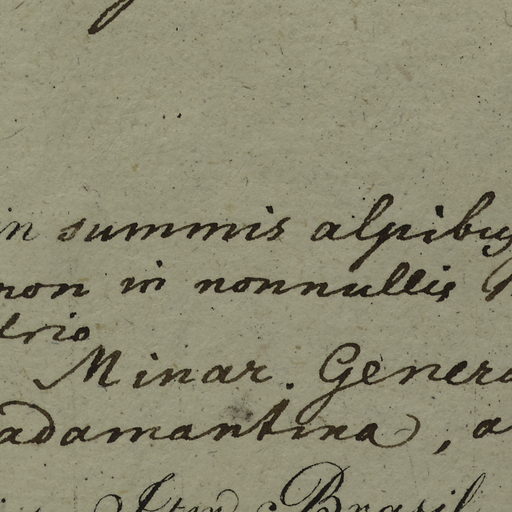 in summis alpibus
non in nonnullis
drio
Minar. Genera
adamantina, a
Iter Brasil